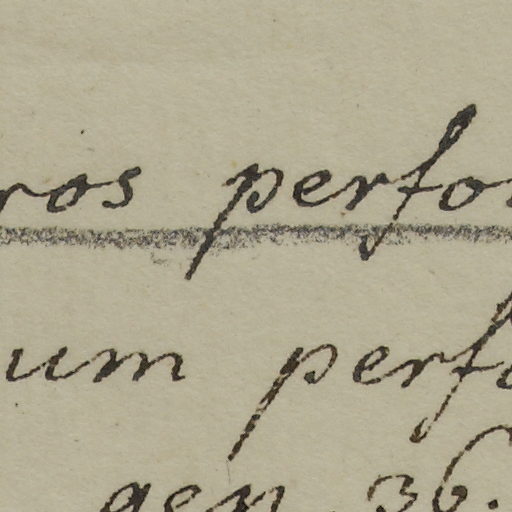 ros perfo
um perfo
gen. 36.